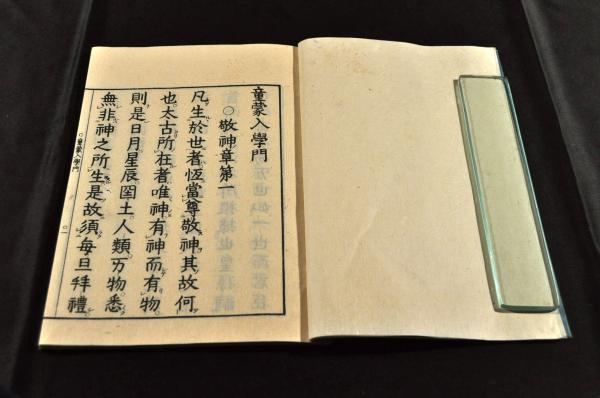 童蒙入學門
○敬神章第一
凡生於世者恆當尊敬神其故何
也太古所在者唯神有神而有物
則是日月星辰囶土人類万物悉
無非神之所生是故須每旦拜禮
○童蒙入學門
○一